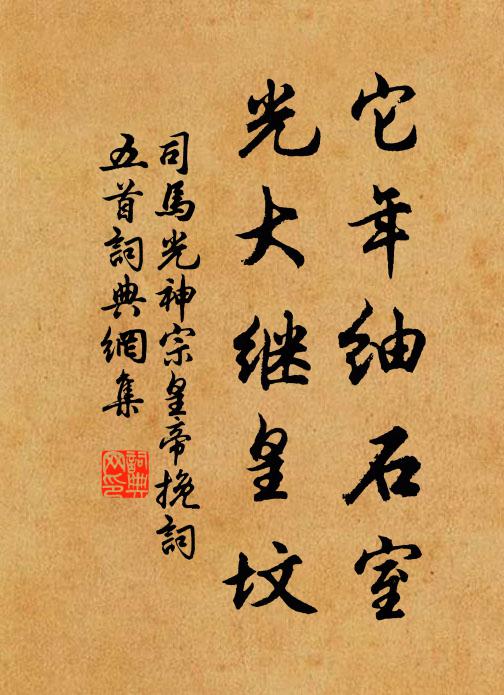 它年紬石室
光大继皇坟
司馬光神宗皇帝挽詞
五首詞典網集
詞典網印